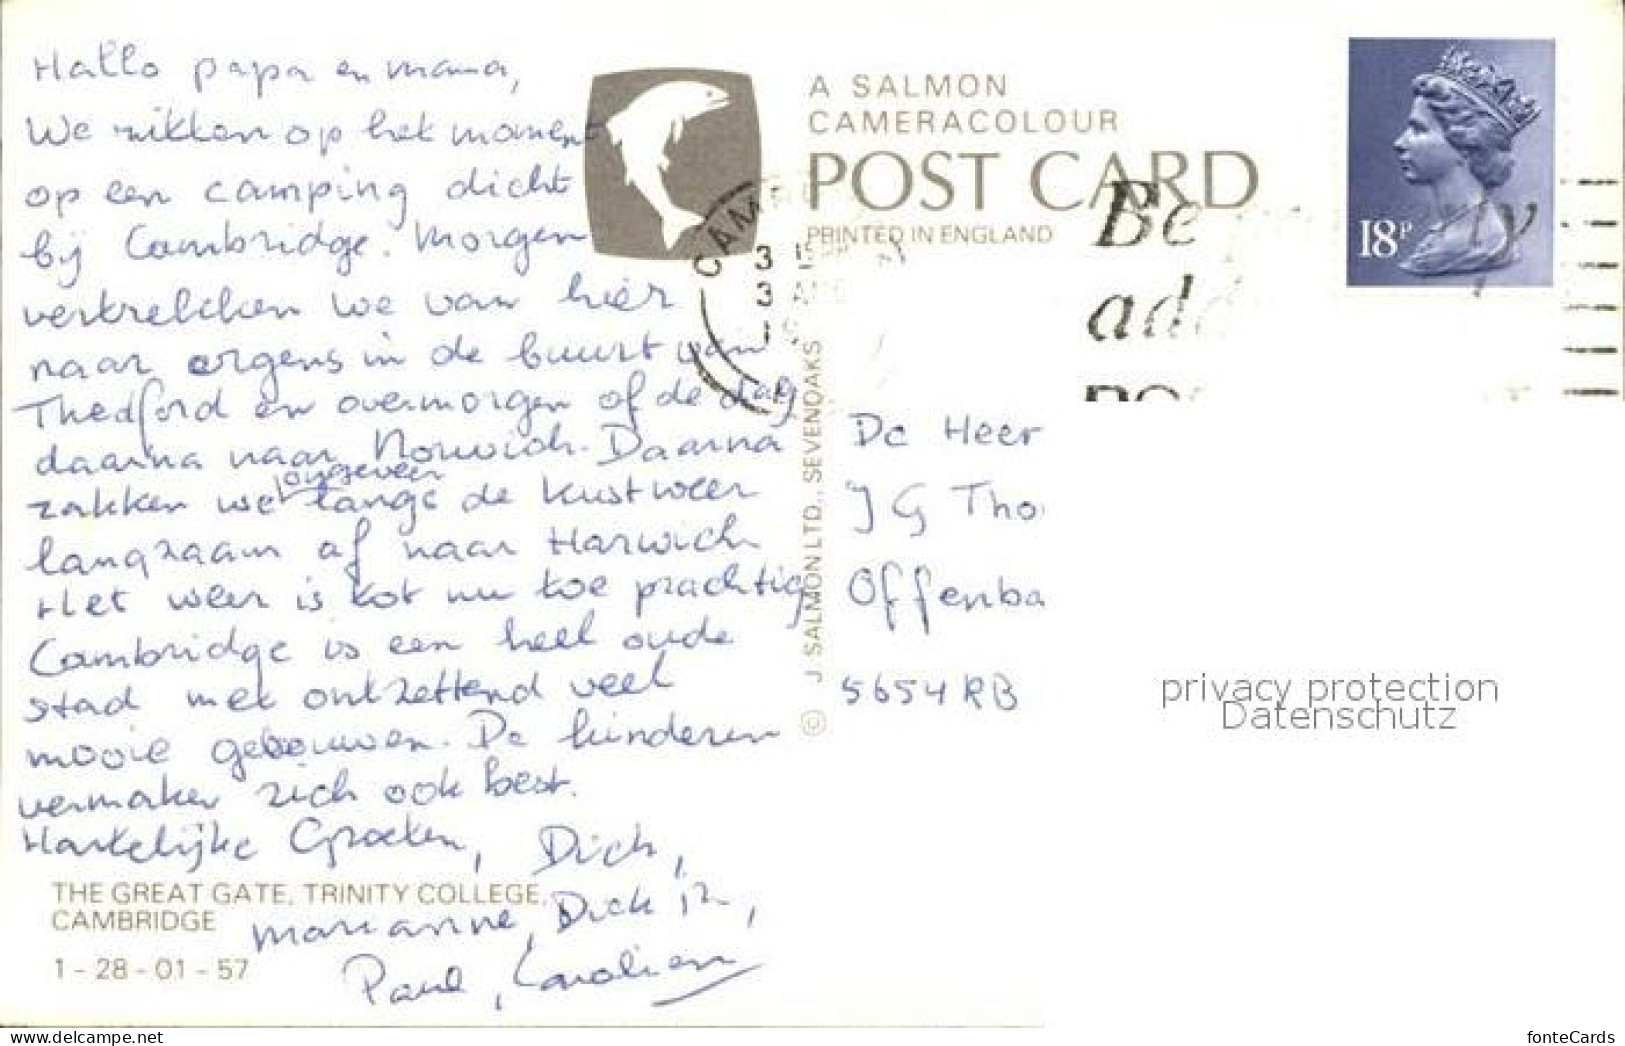 Hallo papa en mama,
We zitten op het moment
op een camping dicht
bij Cambridge. Morgen
vertrekken we van hier
naar ergens in de buurt van
Thedford en overmorgen of de dag
daarna naar Norwich. Daarna
zakken we ongeveer langs de kust weer
langzaam af naar Harwich
Het weer is tot nu toe prachtig
Cambridge is een heel oude
stad met ontzettend veel
mooie gebouwen. De kinderen
vermaken zich ook best.
Hartelijke Groeten, Dick,
Marianne, Dick jr,
Paul, Carolien
THE GREAT GATE, TRINITY COLLEGE,
CAMBRIDGE
1 - 28 - 01 - 57
A SALMON
CAMERACOLOUR
POST CARD
PRINTED IN ENGLAND
© J. SALMON LTD., SEVENOAKS
CAM
3
3
Be
18P
De Heer
J G Tho
Offenba
5654 RB
privacy protection
Datenschutz
fonteCards